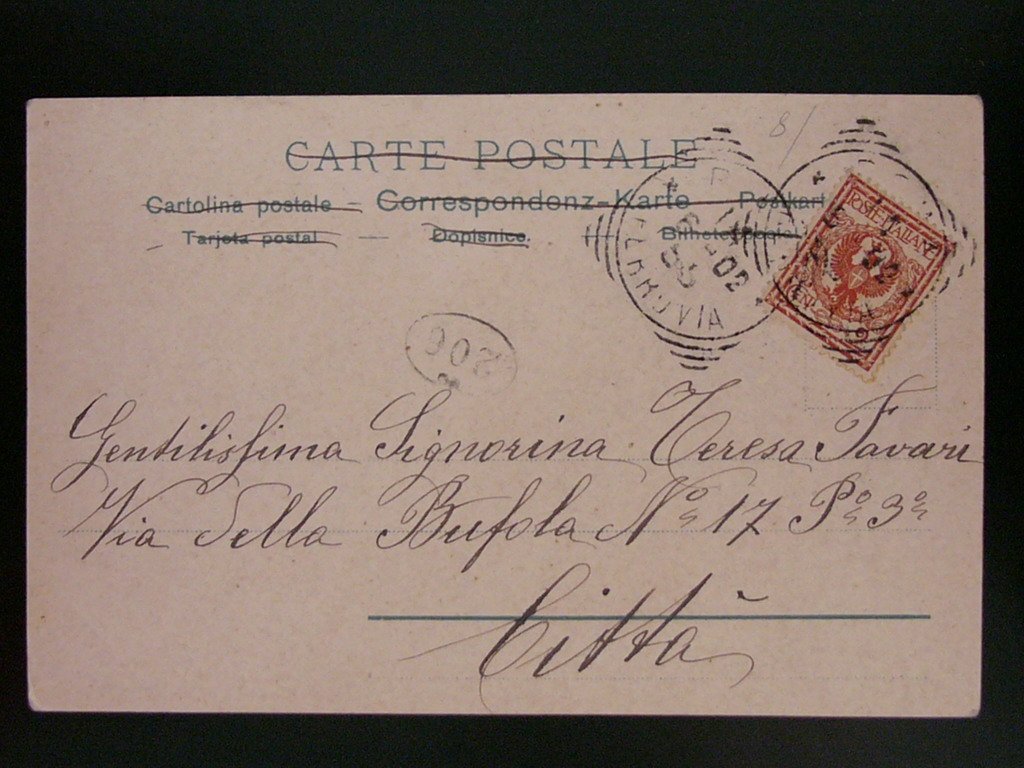 8/
CARTE POSTALE
Cartolina postale – Correspondenz-Karte – Postkart
Tarjeta postal — Dopisnice.
POSTE ITALIANE
FERROVIA
02
206
Gentilissima Signorina Teresa Favari
Via della Bufola Nº 17 Pº 3º
Città